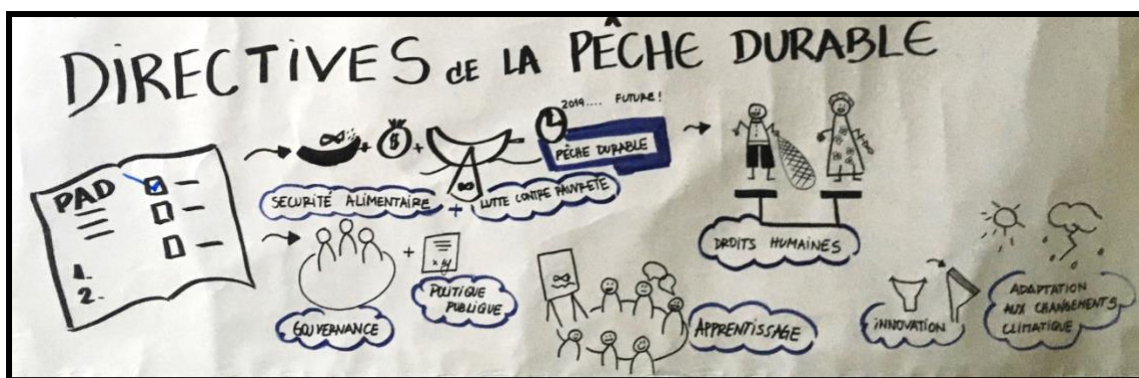 DIRECTIVES de LA PÊCHE DURABLE
PAD
1.
2.
$
2019.... FUTURE!
PÊCHE DURABLE
SECURITÉ ALIMENTAIRE + LUTTE CONTRE PAUVRETÉ
GOUVERNANCE
POLITIQUE
PUBLIQUE
DROITS HUMAINES
APPRENTISSAGE
INNOVATION
ADAPTATION
AUX CHANGEMENTS
CLIMATIQUE